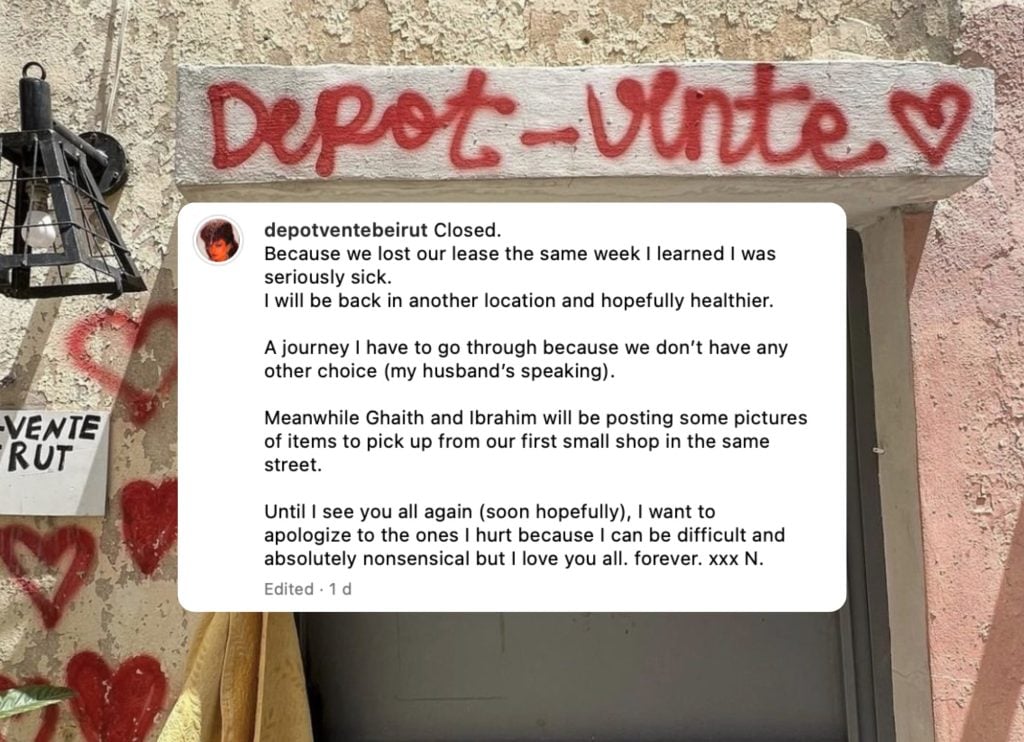 Depot-vente
-VENTE
RUT
depotventebeirut Closed.
Because we lost our lease the same week I learned I was
seriously sick.
I will be back in another location and hopefully healthier.
A journey I have to go through because we don’t have any
other choice (my husband’s speaking).
Meanwhile Ghaith and Ibrahim will be posting some pictures
of items to pick up from our first small shop in the same
street.
Until I see you all again (soon hopefully), I want to
apologize to the ones I hurt because I can be difficult and
absolutely nonsensical but I love you all. forever. xxx N.
Edited · 1 d